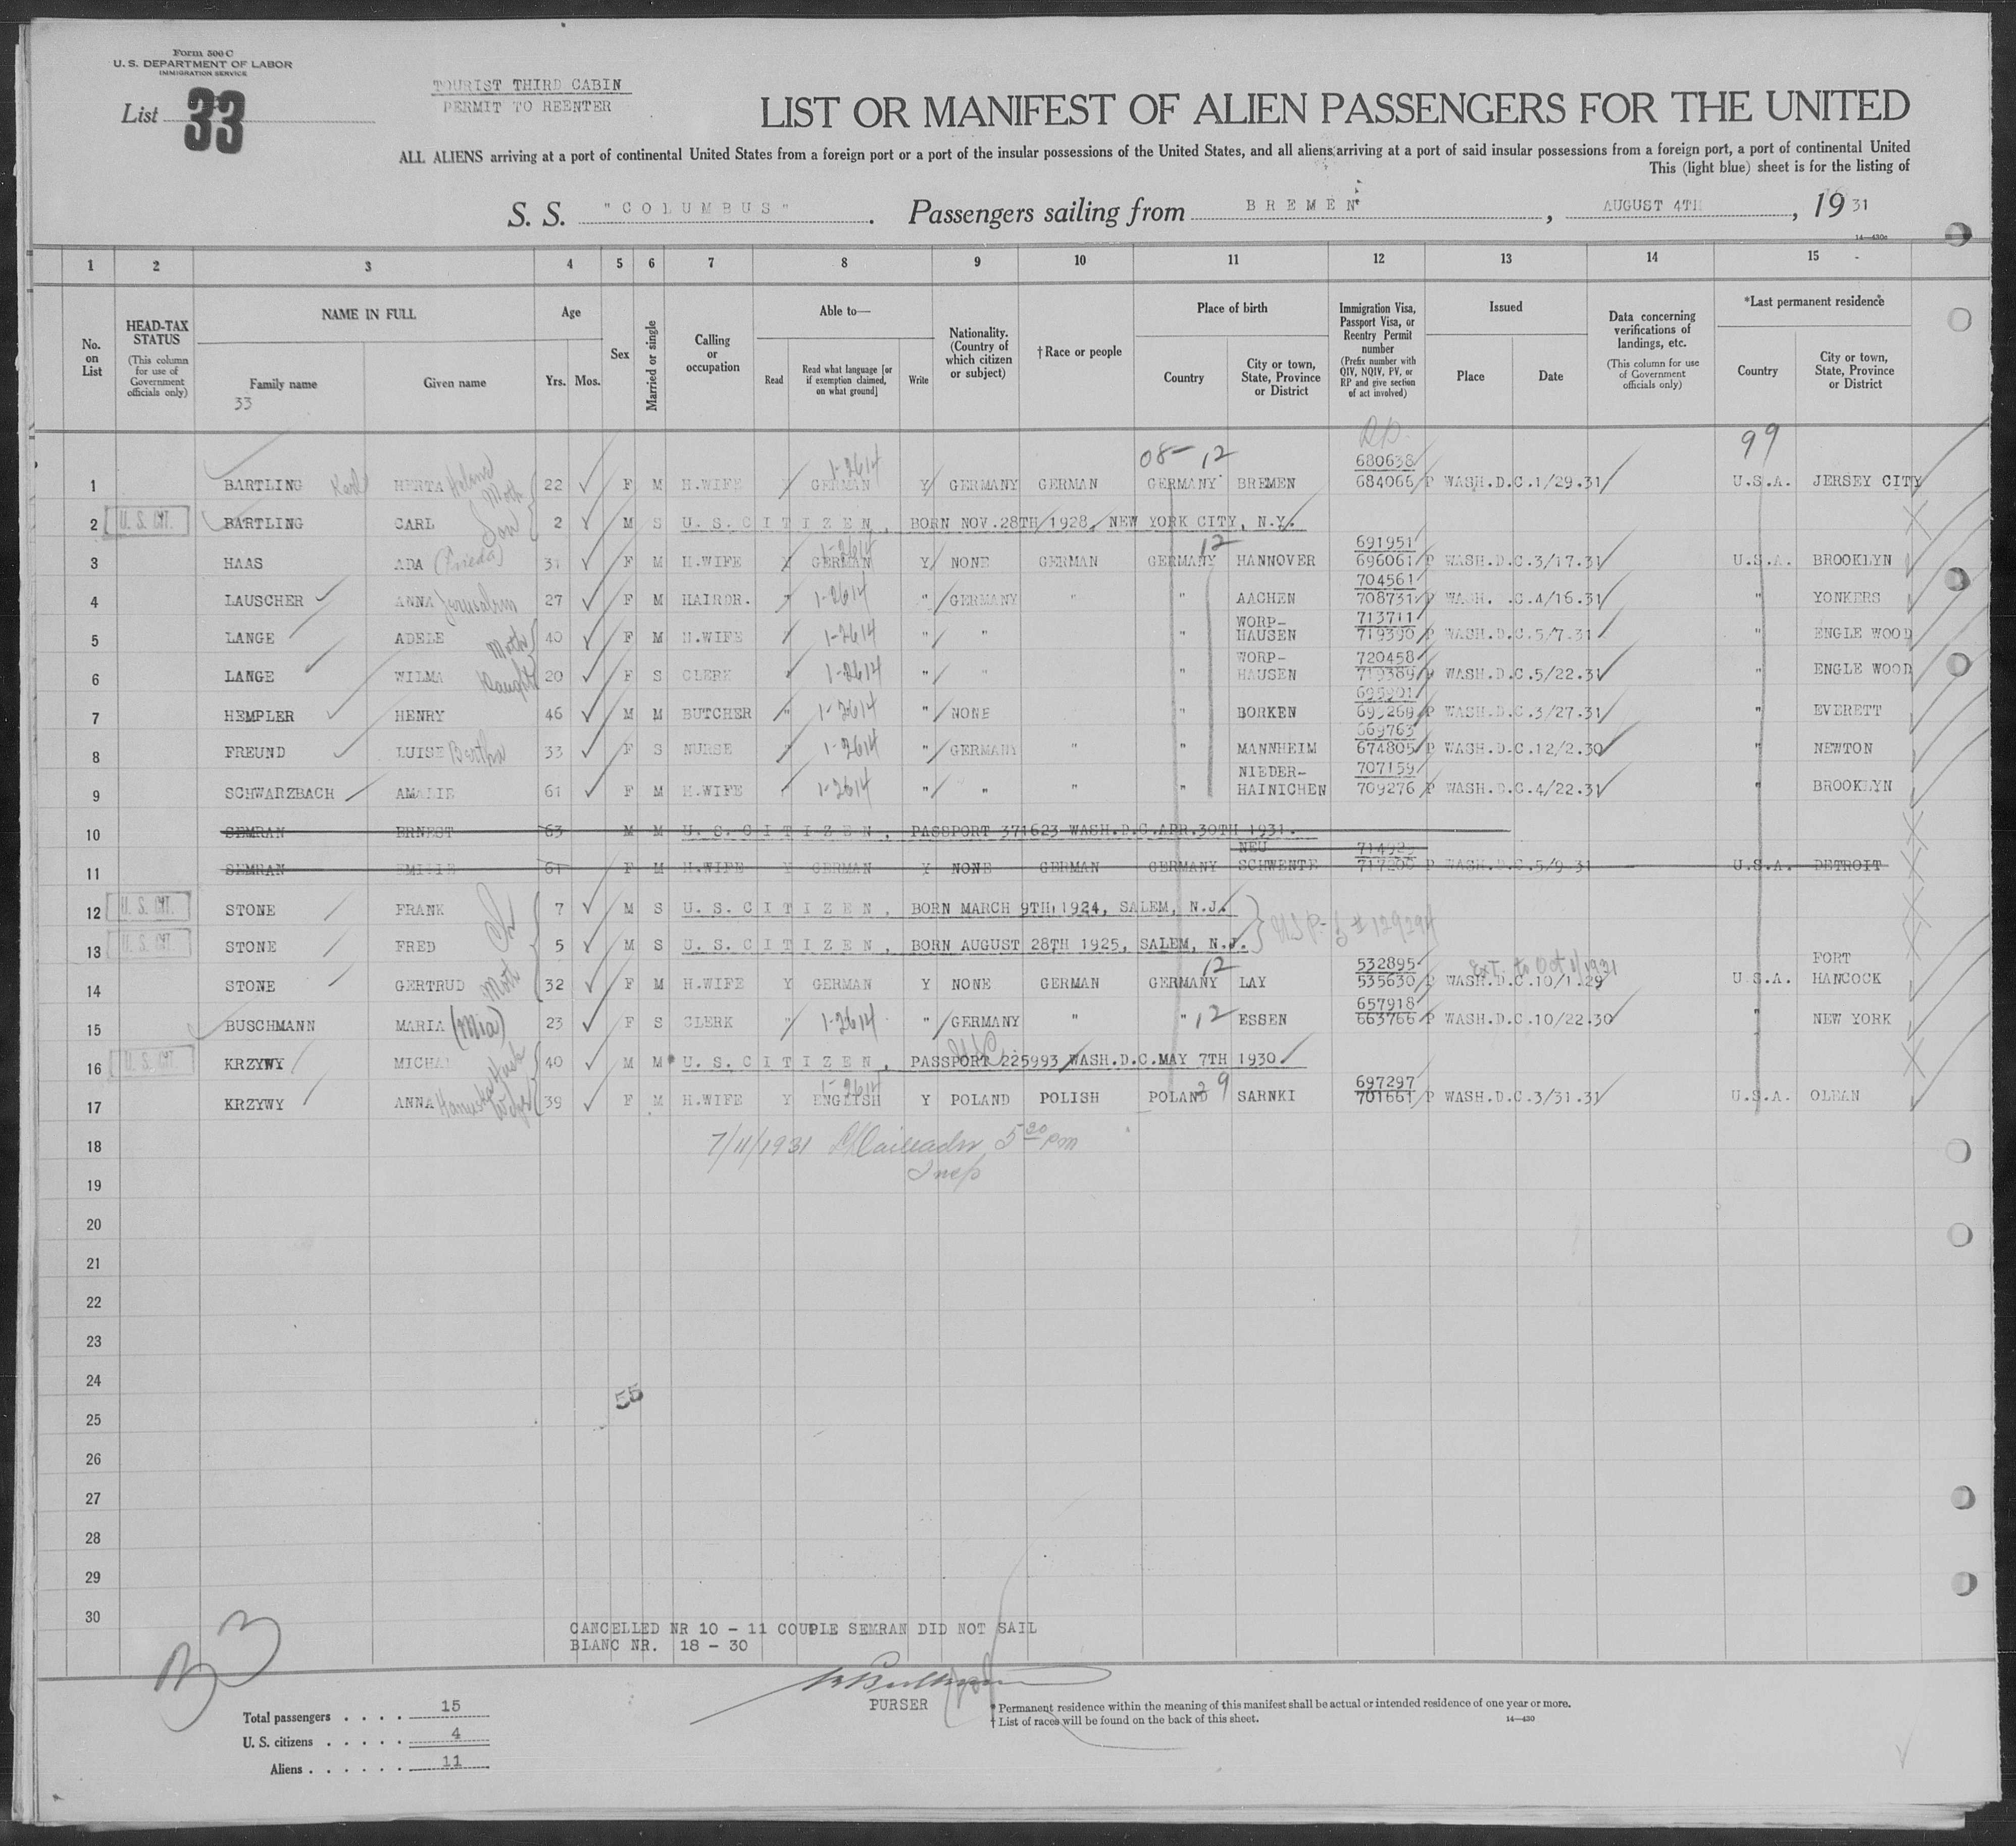 Form 500 C
U. S. DEPARTMENT OF LABOR
IMMIGRATION SERVICE
List 33
TOURIST THIRD CABIN
PERMIT TO REENTER
LIST OR MANIFEST OF ALIEN PASSENGERS FOR THE UNITED
ALL ALIENS arriving at a port of continental United States from a foreign port or a port of the insular possessions of the United States, and all aliens arriving at a port of said insular possessions from a foreign port, a port of continental United
This (light blue) sheet is for the listing of
S. S. "COLUMBUS" . Passengers sailing from BREMEN , AUGUST 4TH , 1931
14—430c
1 2 3 4 5 6 7 8 9 10 11 12 13 14 15
No. on List
HEAD-TAX STATUS
(This column for use of Government officials only)
NAME IN FULL
Family name
33
Given name
Age
Yrs. Mos.
Sex
Married or single
Calling or occupation
Able to—
Read
Read what language [or if exemption claimed, on what ground]
Write
Nationality. (Country of which citizen or subject)
† Race or people
Place of birth
Country
City or town, State, Province or District
Immigration Visa, Passport Visa, or Reentry Permit number
(Prefix number with QIV, NQIV, PV, or RP and give section of act involved)
Issued
Place
Date
Data concerning verifications of landings, etc.
(This column for use of Government officials only)
*Last permanent residence
Country
City or town, State, Province or District
08- 12
99
1-2614
680638
1 BARTLING Karl HERTA Helene Moth 22 F M H.WIFE Y GERMAN Y GERMANY GERMAN GERMANY BREMEN 684066 P WASH.D.C.1/29.31 U.S.A. JERSEY CITY
2 U. S. CIT. BARTLING CARL Son 2 M S U. S. CITIZEN, BORN NOV.28TH 1928, NEW YORK CITY, N.Y.
1-2614 12 691951
3 HAAS ADA (Frieda) 31 F M H.WIFE Y GERMAN Y NONE GERMAN GERMANY HANNOVER 696061 P WASH.D.C.3/17.31 U.S.A. BROOKLYN
704561
4 LAUSCHER ANNA Jerusalem 27 F M HAIRDR. " 1-2614 " GERMANY " " AACHEN 708731 P WASH. .C.4/16.31 " YONKERS
WORP- 713711
5 LANGE ADELE Moth 40 F M H.WIFE 1-2614 " " " HAUSEN 719390 P WASH.D.C.5/7.31 " ENGLE WOOD
WORP- 720458
6 LANGE WILMA Daught 20 F S CLERK " 1-2614 " " " HAUSEN 719389 P WASH.D.C.5/22.31 " ENGLE WOOD
695901
7 HEMPLER HENRY 46 M M BUTCHER " 1-2614 " NONE " BORKEN 699269 P WASH.D.C.3/27.31 " EVERETT
669763
8 FREUND LUISE Bertha 33 F S NURSE " 1-2614 " GERMANY " " MANNHEIM 674805 P WASH.D.C.12/2.30 " NEWTON
NIEDER- 707159
9 SCHWARZBACH AMALIE 61 F M H.WIFE 1-2614 " " " " HAINICHEN 709276 P WASH.D.C.4/22.31 " BROOKLYN
10 SEMRAN ERNEST 63 M M U. S. CITIZEN, PASSPORT 371623 WASH.D.C.APR.30TH 1931.
NEU
11 SEMRAN EMILIE 61 F M H.WIFE Y GERMAN Y NONE GERMAN GERMANY SCHWENTE 717200 P WASH.D.C.5/9.31 U.S.A. DETROIT
12 U. S. CIT. STONE FRANK Ch 7 M S U. S. CITIZEN, BORN MARCH 9TH 1924, SALEM, N.J.
USP- # 129294
13 U. S. CIT. STONE FRED 5 M S U. S. CITIZEN, BORN AUGUST 28TH 1925, SALEM, N.J.
12 532895 Ext. to Oct 1/1931 FORT
14 STONE GERTRUD Moth 32 F M H.WIFE Y GERMAN Y NONE GERMAN GERMANY LAY 535630 P WASH.D.C.10/1.29 U.S.A. HANCOCK
657918
15 BUSCHMANN MARIA (Mia) 23 F S CLERK " 1-2614 " GERMANY " " 12 ESSEN 663766 P WASH.D.C.10/22.30 " NEW YORK
USC
16 U. S. CIT. KRZYWY MICHA Husb 40 M M U. S. CITIZEN, PASSPORT 225993 WASH.D.C.MAY 7TH 1930
1-2614 29 697297
17 KRZYWY ANNA Wife 39 F M H.WIFE Y ENGLISH Y POLAND POLISH POLAND SARNKI 701661 P WASH.D.C.3/31.31 U.S.A. OLEAN
18 7/11/1931 5 30 pm
Insp
19
20
21
22
23
24
55
25
26
27
28
29
30
CANCELLED NR 10 - 11 COUPLE SEMRAN DID NOT SAIL
BLANC NR. 18 - 30
PURSER
* Permanent residence within the meaning of this manifest shall be actual or intended residence of one year or more.
† List of races will be found on the back of this sheet.
14—430
Total passengers . . . . 15
U. S. citizens . . . . . 4
Aliens . . . . . . 11